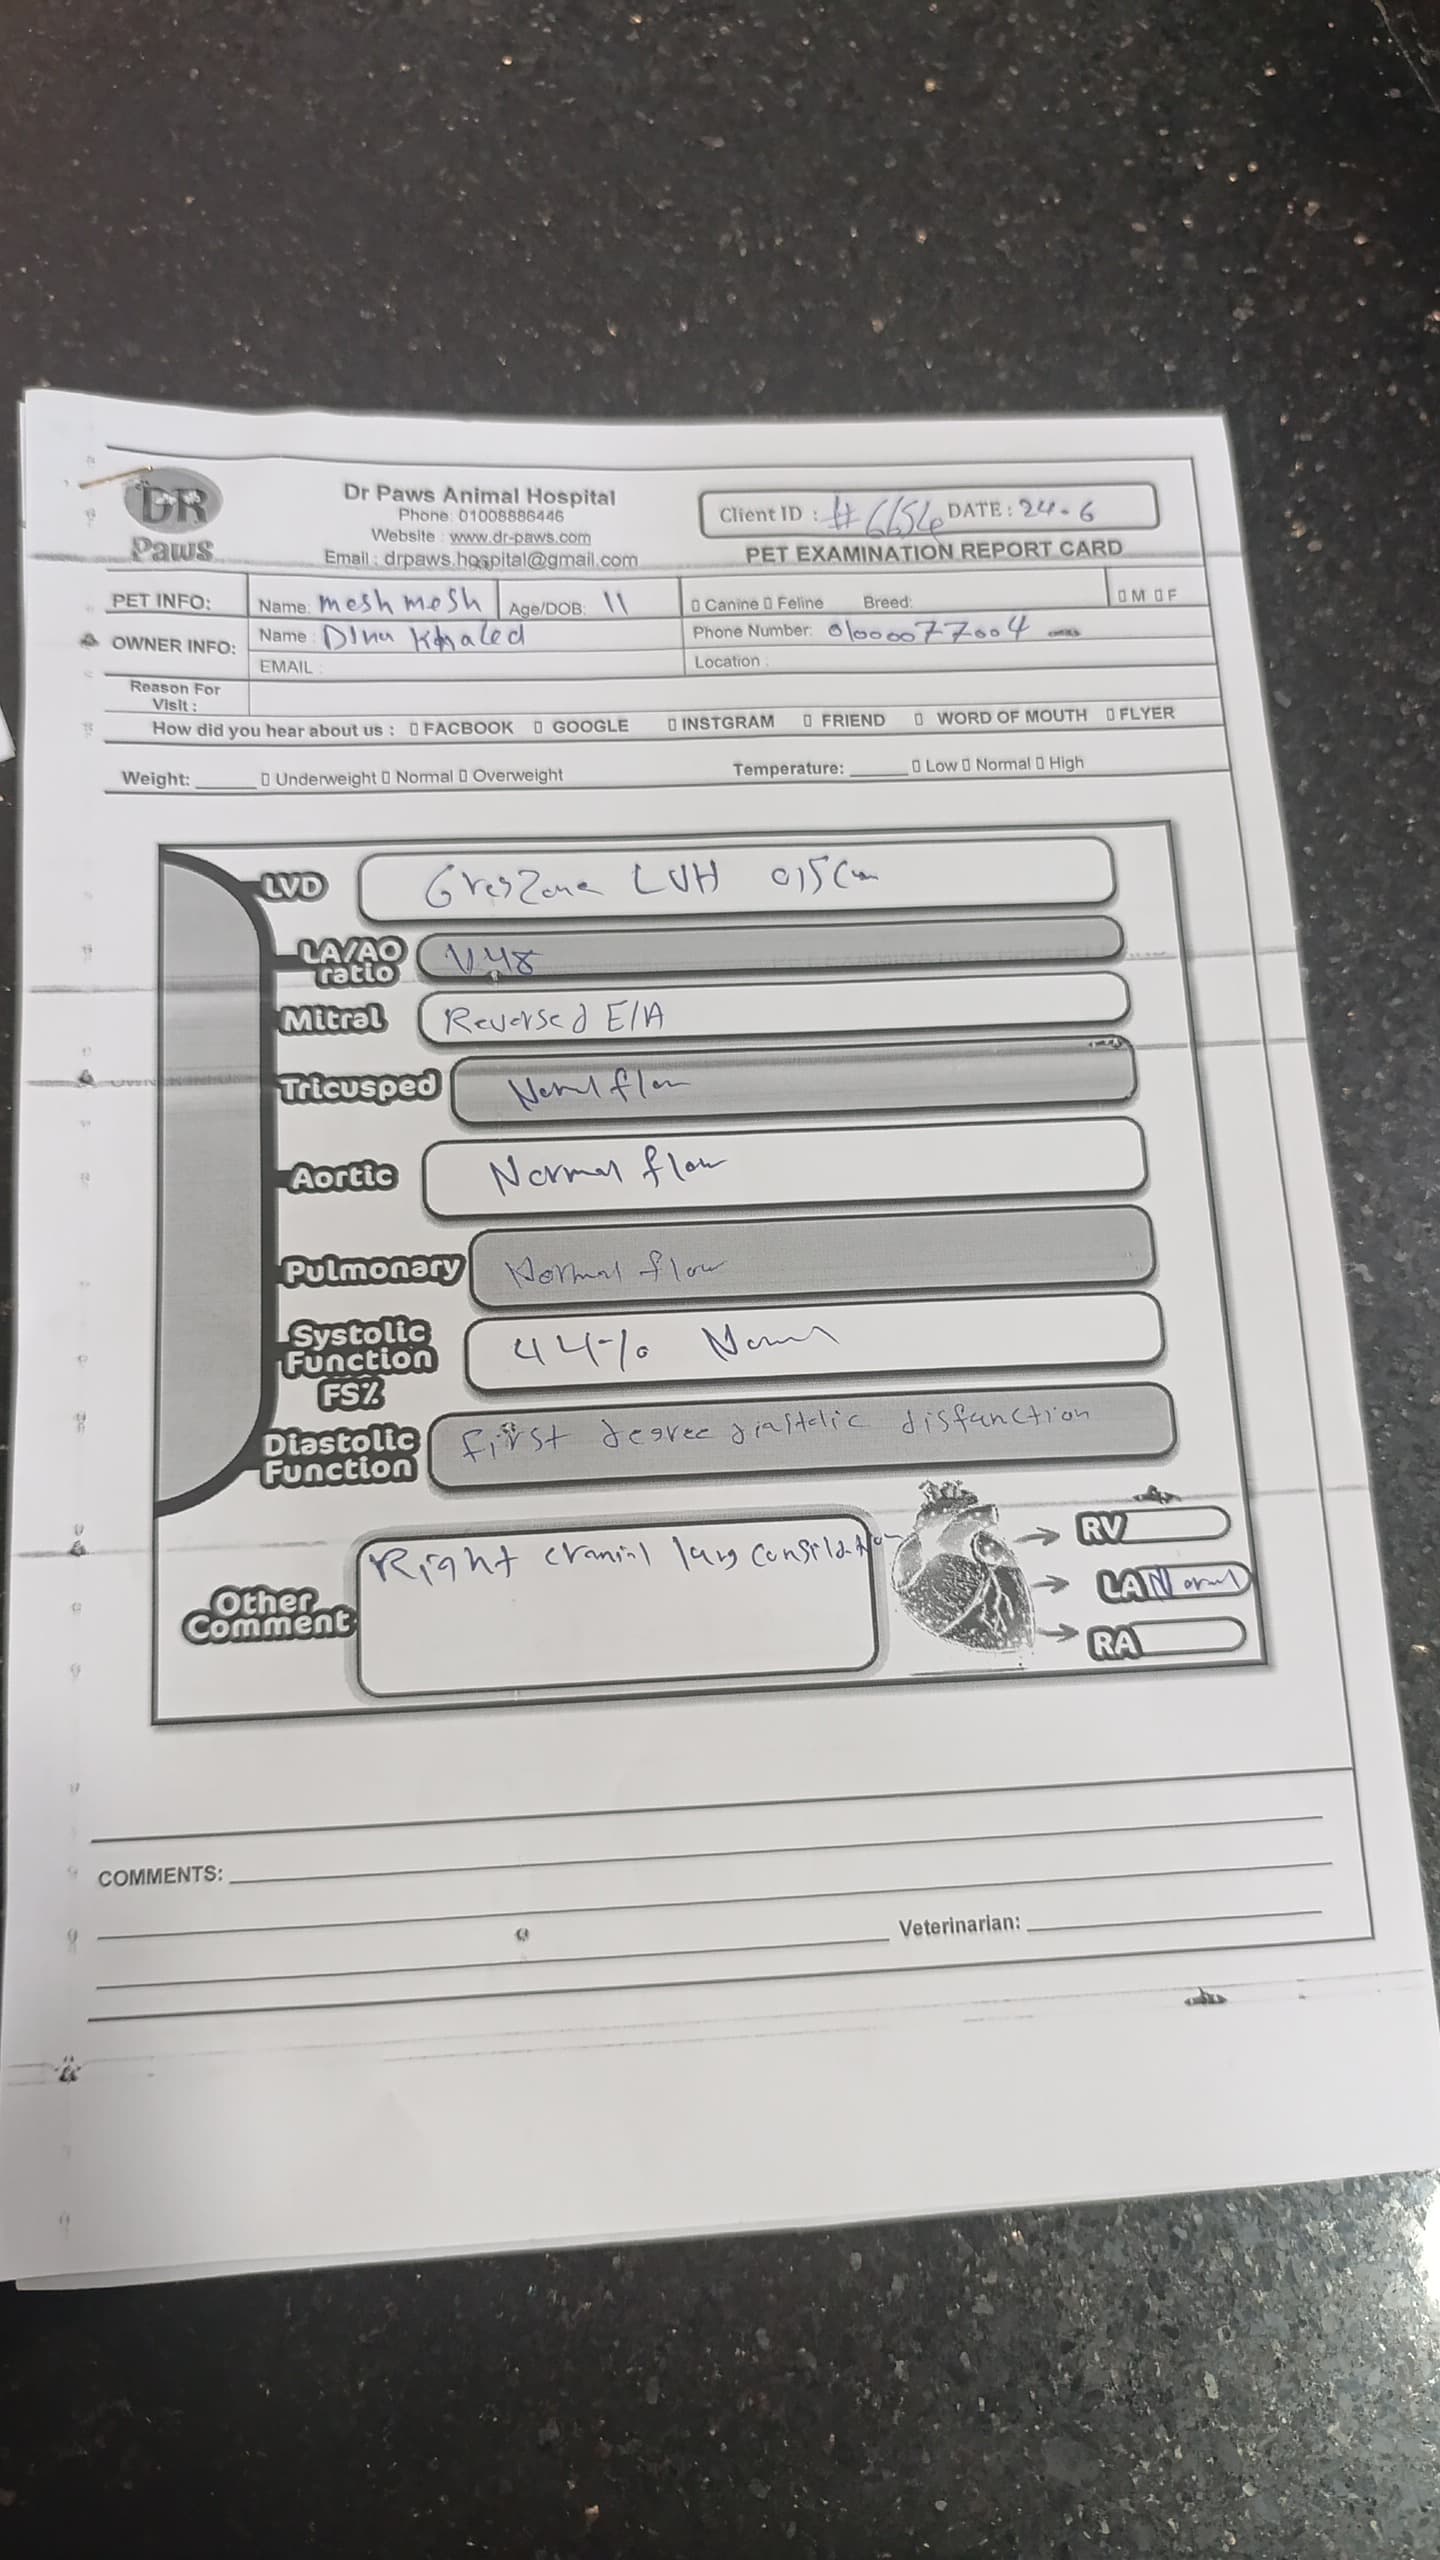 DR
Paws
Dr Paws Animal Hospital
Phone: 01008886446
Website : www.dr-paws.com
Email : drpaws.hospital@gmail.com
Client ID : DATE : 24-6
PET EXAMINATION REPORT CARD
PET INFO: Name: mesh mesh Age/DOB: 11 Canine Feline Breed: M F
OWNER INFO: Name : Khaled Phone Number: 01000077004
EMAIL : Location :
Reason For
Visit :
How did you hear about us : FACBOOK GOOGLE INSTGRAM FRIEND WORD OF MOUTH FLYER
Weight: Underweight Normal Overweight Temperature: Low Normal High
LVD GreyZone LVH 0,5 Cm
LA/AO
ratio 1.48
Mitral Reversed E/A
Tricusped Normal flow
Aortic Normal flow
Pulmonary Normal flow
Systolic
Function
FS% 44% Normal
Diastolic
Function first degree diastolic disfunction
Other
Comment Right cranial lung consildation
RV
LA Normal
RA
COMMENTS:
Veterinarian: